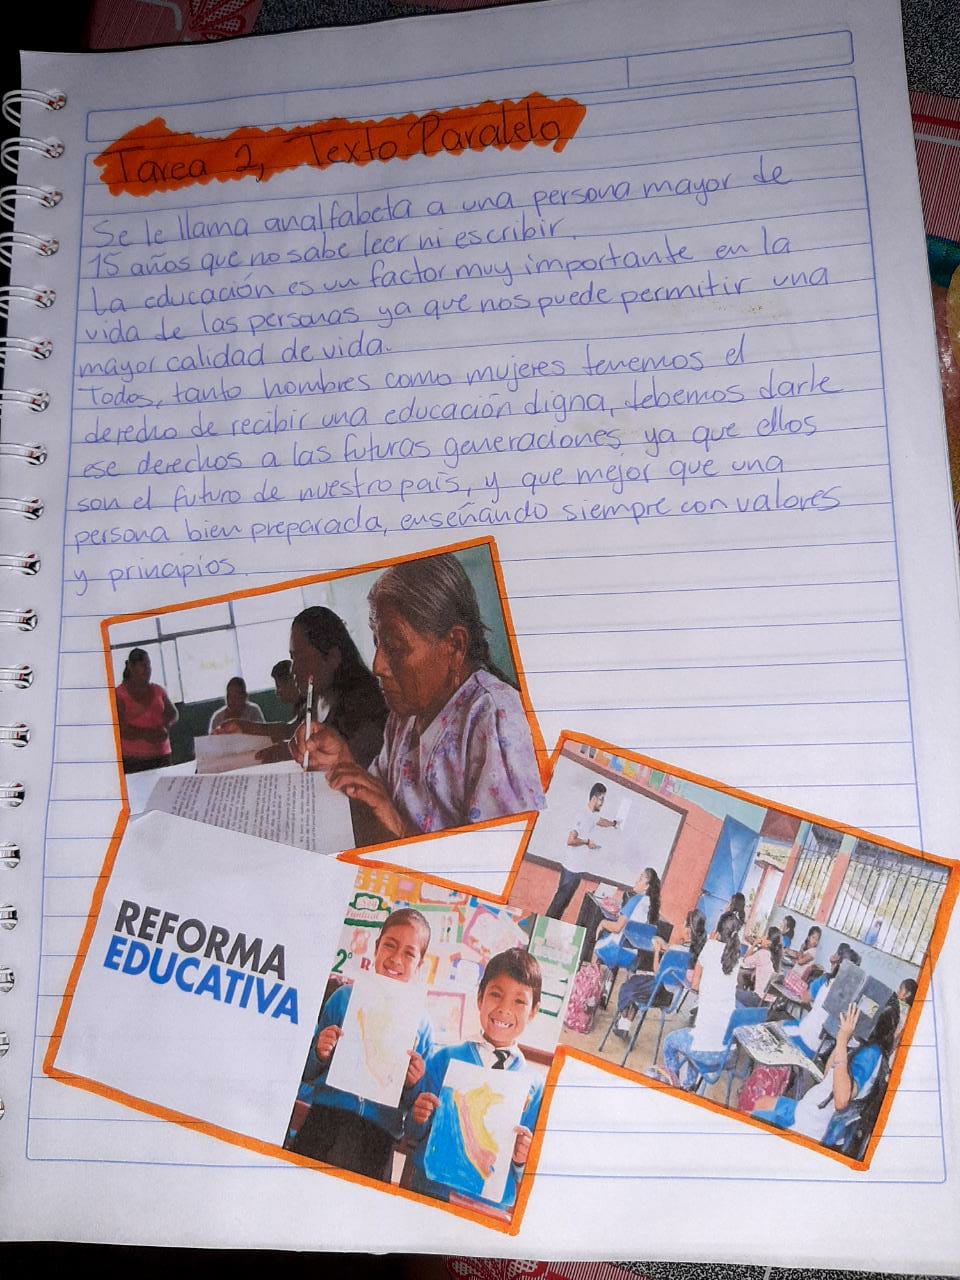 Tarea 2, Texto Paralelo,
Se le llama analfabeta a una persona mayor de
15 años que no sabe leer ni escribir.
La educación es un factor muy importante en la
vida de las personas ya que nos puede permitir una
mayor calidad de vida.
Todos, tanto hombres como mujeres tenemos el
derecho de recibir una educación digna, debemos darle
ese derechos a las futuras generaciones, ya que ellos
son el futuro de nuestro país, y que mejor que una
persona bien preparada, enseñando siempre con valores
y principios.
REFORMA
EDUCATIVA
2°